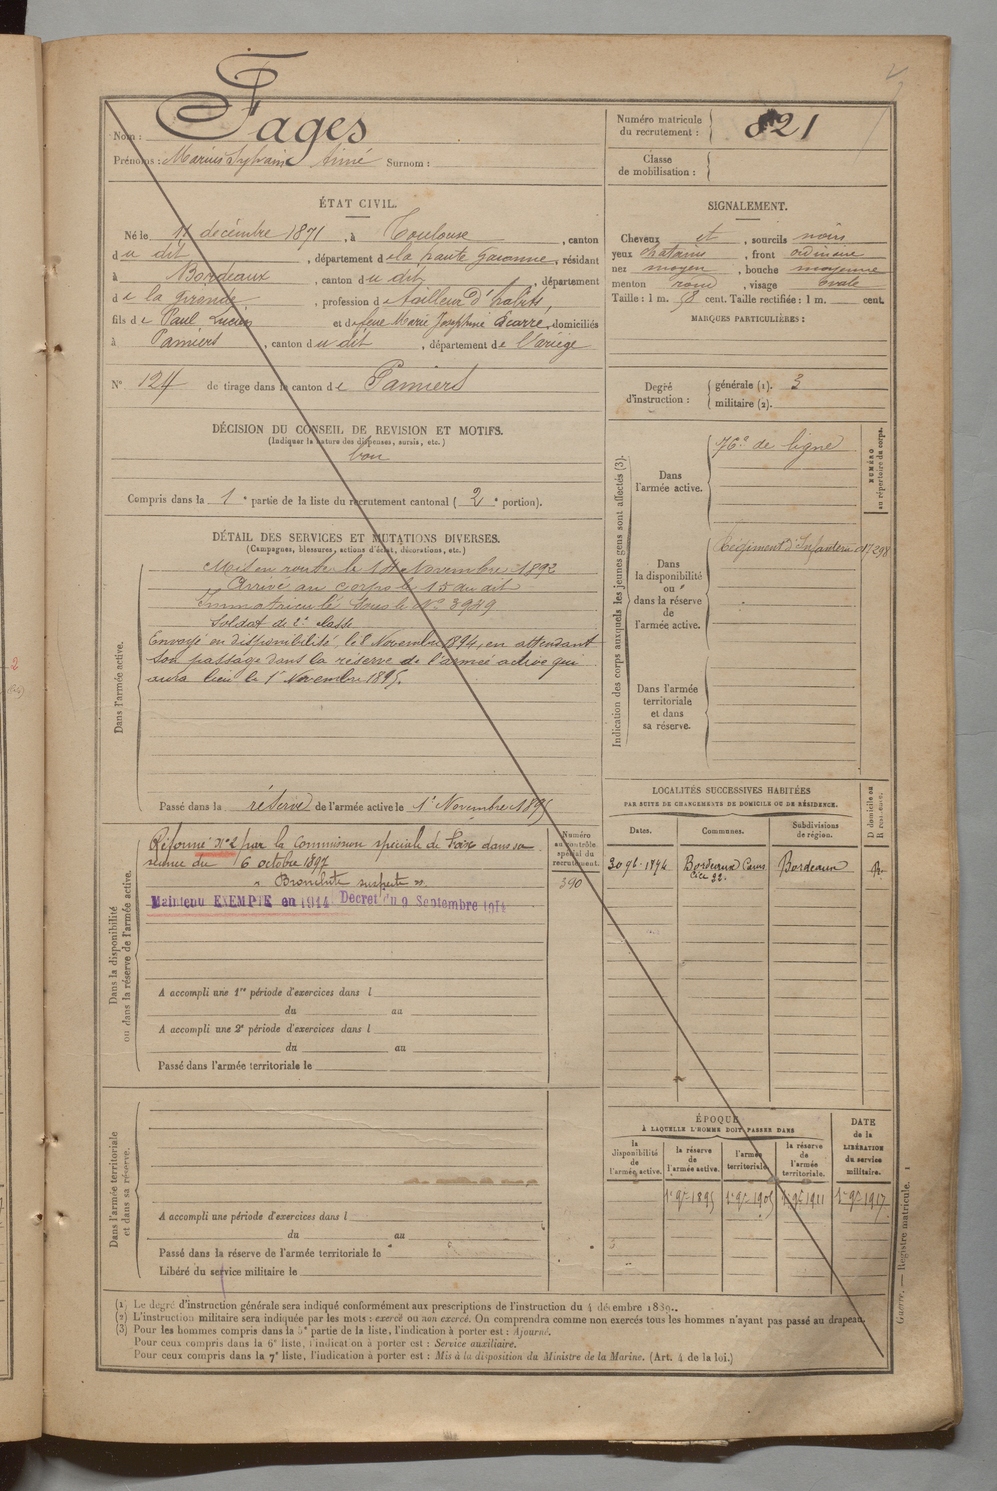 Nom : Fages
Prénoms : Marius Sylvain Aimé Surnom :
Numéro matricule du recrutement : 821
Classe de mobilisation :
ÉTAT CIVIL.
Né le 11 décembre 1871, à Toulouse, canton
du dit, département de la haute Garonne, résidant
à Bordeaux, canton du dit, département
de la gironde, profession de tailleur d'habits,
fils de Paul Lucien et de feue Marie Joséphine Ecarré, domiciliés
à Pamiers, canton du dit, département de l'ariège
N° 124 de tirage dans le canton de Pamiers
SIGNALEMENT.
Cheveux et, sourcils noirs
yeux chatains, front ordinaire
nez moyen, bouche moyenne
menton rond, visage ovale
Taille : 1 m. 58 cent. Taille rectifiée : 1 m. cent.
MARQUES PARTICULIÈRES :
Degré d'instruction : générale (1). 3
militaire (2).
DÉCISION DU CONSEIL DE REVISION ET MOTIFS.
(Indiquer la nature des dispenses, sursis, etc.)
bon
Compris dans la 1e partie de la liste du recrutement cantonal (2e portion).
DÉTAIL DES SERVICES ET MUTATIONS DIVERSES.
(Campagnes, blessures, actions d'éclat, décorations, etc.)
Dans l'armée active.
Mis en route le 14 Novembre 1892
Arrivé au corps le 15 du dit
Immatriculé sous le N° 3949
Soldat de 2e classe
Envoyé en disponibilité, le 8 Novembre 1894, en attendant
son passage dans la réserve de l'armée active qui
aura lieu le 1er Novembre 1895.
Passé dans la réserve de l'armée active le 1er Novembre 1895
Indication des corps auxquels les jeunes gens sont affectés (3).
NUMÉRO au répertoire du corps.
Dans l'armée active.
76e de ligne
Dans la disponibilité ou dans la réserve de l'armée active.
Régiment d'Infanterie
Dans l'armée territoriale et dans sa réserve.
Dans la disponibilité ou dans la réserve de l'armée active.
Réformé N°2 par la Commission spéciale de Foix dans sa
séance du 16 octobre 1897
"Bronchite suspecte".
Maintenu EXEMPTE en 1914 Decret du 9 Septembre 1914
Numéro au contrôle spécial du recrutement.
390
A accompli une 1re période d'exercices dans l
du au
A accompli une 2e période d'exercices dans l
du au
Passé dans l'armée territoriale le
LOCALITÉS SUCCESSIVES HABITÉES
PAR SUITE DE CHANGEMENTS DE DOMICILE OU DE RÉSIDENCE.
Dates. Communes. Subdivisions de région. D domicile ou R résidence.
30 9b. 1894 Bordeaux Cours Bordeaux R.
22.
Dans l'armée territoriale et dans sa réserve.
A accompli une période d'exercices dans l
du au
Passé dans la réserve de l'armée territoriale le
Libéré du service militaire le
ÉPOQUE
À LAQUELLE L'HOMME DOIT PASSER DANS
la disponibilité de l'armée active. la réserve de l'armée active. l'armée territoriale. la réserve de l'armée territoriale. DATE de la LIBÉRATION du service militaire.
1er 9bre 1895 1er 9bre 1905 1er 9bre 1911 1er 9bre 1917
(1) Le degré d'instruction générale sera indiqué conformément aux prescriptions de l'instruction du 4 décembre 1889.
(2) L'instruction militaire sera indiquée par les mots : exercé ou non exercé. On comprendra comme non exercés tous les hommes n'ayant pas passé au drapeau.
(3) Pour les hommes compris dans la 5e partie de la liste, l'indication à porter est : Ajourné.
Pour ceux compris dans la 6e liste, l'indication à porter est : Service auxiliaire.
Pour ceux compris dans la 7e liste, l'indication à porter est : Mis à la disposition du Ministre de la Marine. (Art. 4 de la loi.)
Guerre. — Registre matricule. 1